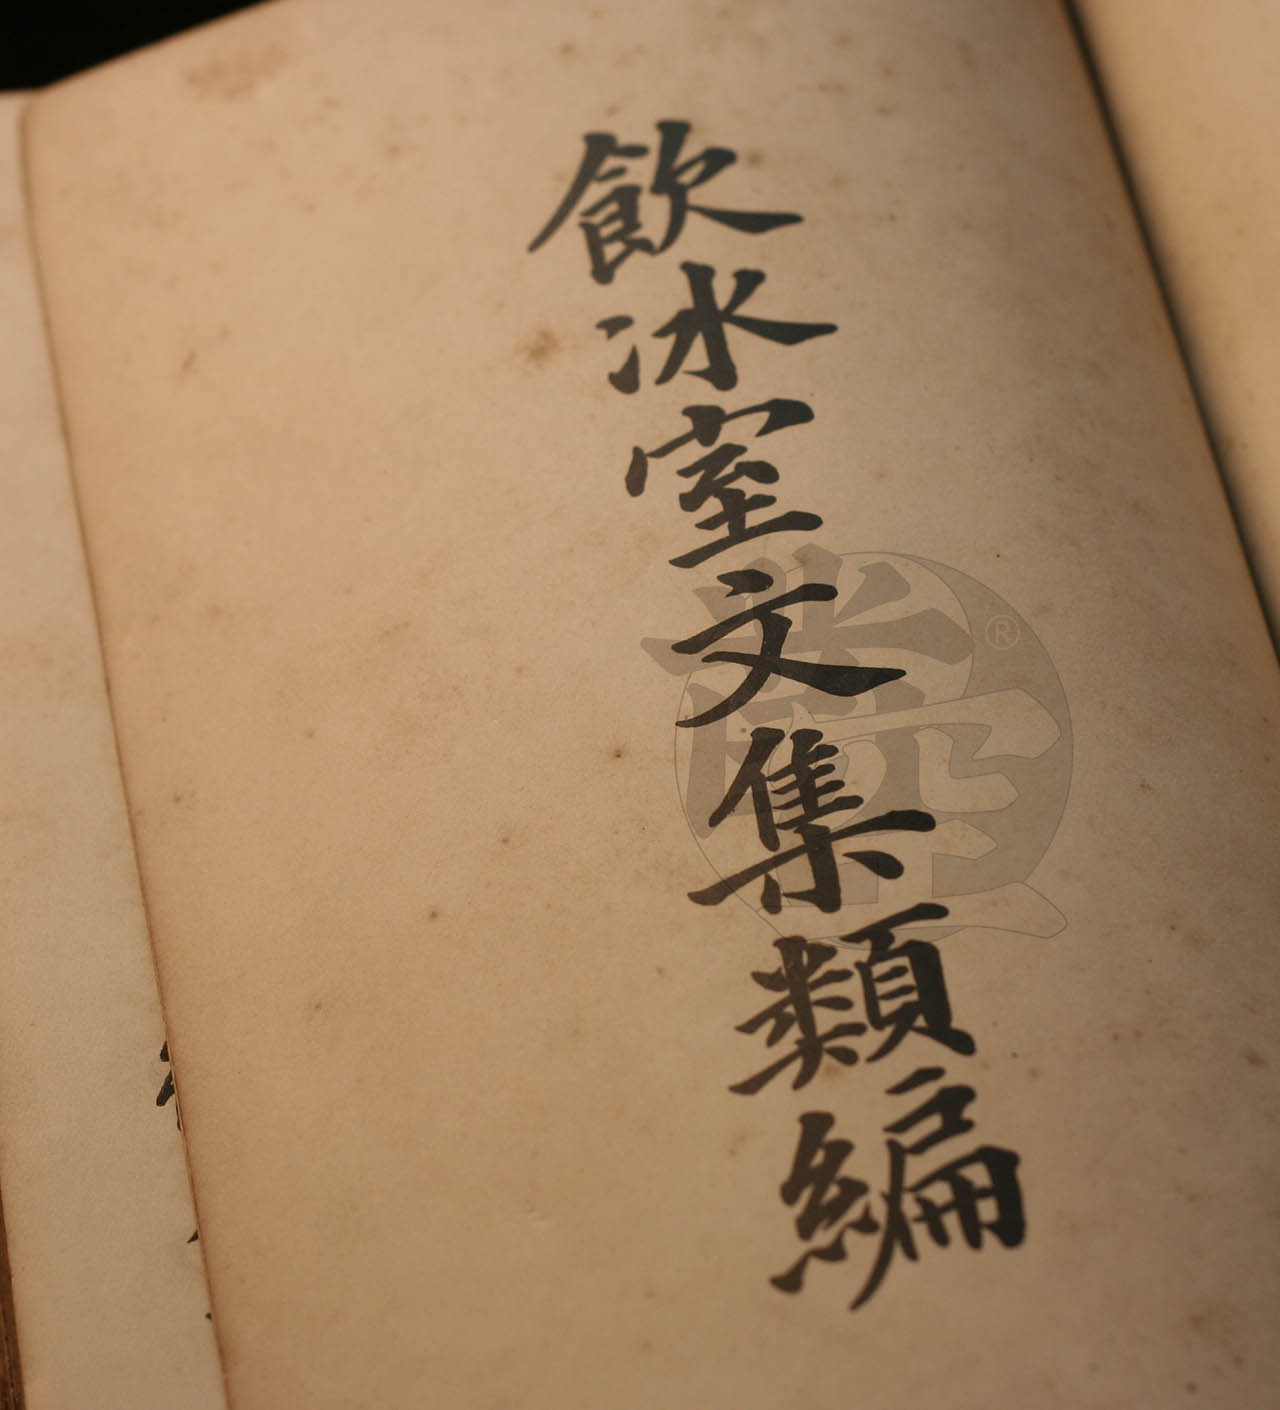 飲冰室文集類編
®